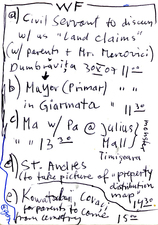 WF
a) Civil Servant to discuss
w/ us "Land claims"
(w/ parents + Mr. Mercovici)
Dumbravita 11 00
b) Mayor (Primar) " "
in Giarmata " " 11 30
c) Ma w/ Pa @ Julius
" " 13 30 Mall
Timisoara
d) St. Andres
(to take picture of "property
distribution
map" 14 30
e) Covaci
to parents to come
from cemetery 15 00